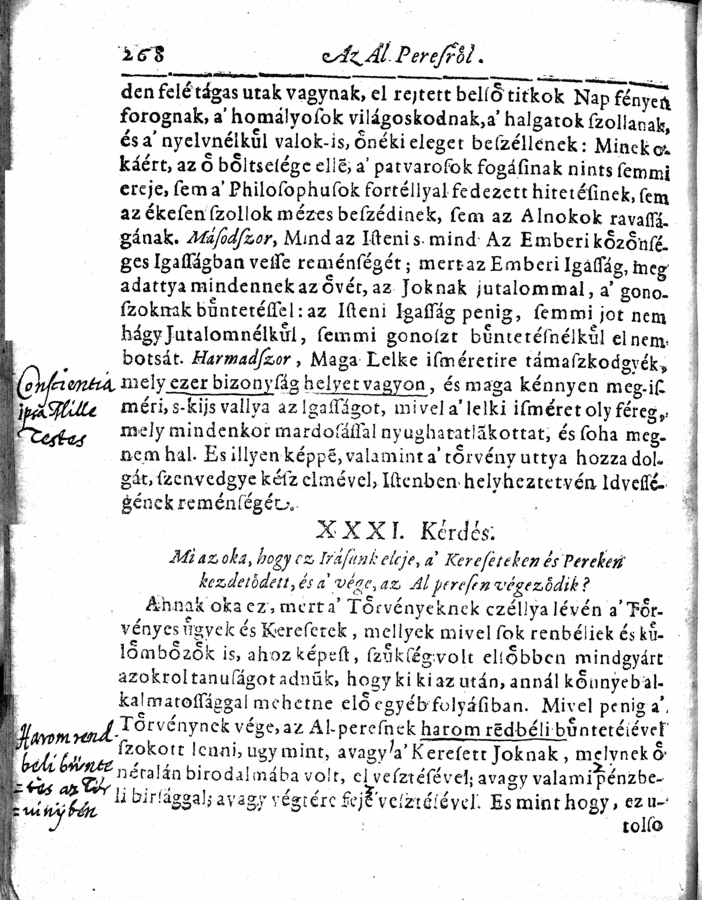 268 Az Ál Pereſről.
den felé tágas utak vagynak, el rejtett belſő titkok Nap fényen
forognak, a' homályoſok világoskodnak, a' halgatok ſzollanak,
és a' nyelvnélkűl valok-is, őnéki eleget beſzéllenek: Minek o-
káért, az ő bőltseſége ellē, a' patvaroſok fogáſinak nints ſemmi
ereje, ſem a' Philoſophuſok fortéllyal fedezett hitetéſinek, ſem
az ékeſen ſzollok mézes beſzédinek, ſem az Alnokok ravaſſá-
gának. Máſodſzor, Mind az Iſteni s mind Az Emberi kőzőnſé-
ges Igaſſágban veſſe reménſégét; mert az Emberi Igáſſág, meg
adattya mindennek az ővét, az Joknak jutalommal, a' gono-
ſzoknak bűntetéſſel: az Iſteni Igaſſág penig, ſemmi jot nem
hágy Jutalomnélkűl, ſemmi gonoſzt bűntetéſnélkűl el nem
botsát. Harmadſzor, Maga Lelke iſméretire támaſzkodgyék,
Conſcientia mely ezer bizonyſág helyet vagyon, és maga kénnyen meg-iſ-
ipſa Mille méri, s-kijs vallya az Igaſſágot, mivel a' lelki iſméret oly féreg,
Testes mely mindenkor mardoſáſſal nyughatatlākottat, és ſoha meg-
nem hal. Es illyen képpē, valamint a' tőrvény uttya hozza dol-
gát, ſzenvedgye kéſz elmével, Iſtenben helyheztetvén Idveſſé-
gének reménſégét.
XXXI. Kérdés.
Mi az oka, hogy ez Iráſunk eleje, a' Kereſeteken és Pereken
kezdetődett, és a' vége, az Al pereſen végeződik?
Ahnak oka ez, mert a' Tőrvényeknek czéllya lévén a' Tőr-
vényes űgyek és Kereſetek, mellyek mivel ſok renbéliek és kű-
lőmbőzők is, ahoz képeſt, ſzűkſég volt elſőbben mindgyárt
azokrol tanuſágot adnūk, hogy ki ki az után, annál kőnnyeb al-
kalmatoſſággal mehetne elő egyéb folyáſiban. Mivel penig a'
Harom rend- Tőrvénynek vége, az Al-pereſnek harom rēdbéli bűntetéſével
beli bűnte ſzokott lenni, ugy mint, avagy a' Kereſett Joknak, melynek ő
=tés az Tőr néralán birodalmába volt, el veſztéſével; avagy valami pénzbe-
=vinÿbén li birſággal; avagy végtére fejē veſztéſével. Es mint hogy, ez u-
tolſo